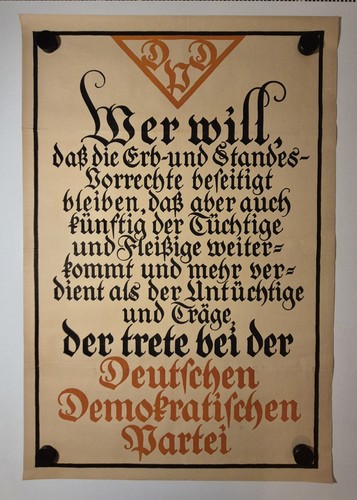 DDP
Wer will,
daß die Erb- und Standes-
Vorrechte beseitigt
bleiben, daß aber auch
künftig der Tüchtige
und Fleißige weiter-
kommt und mehr ver-
dient als der Untüchtige
und Träge,
der trete bei der
Deutschen
Demokratischen
Partei